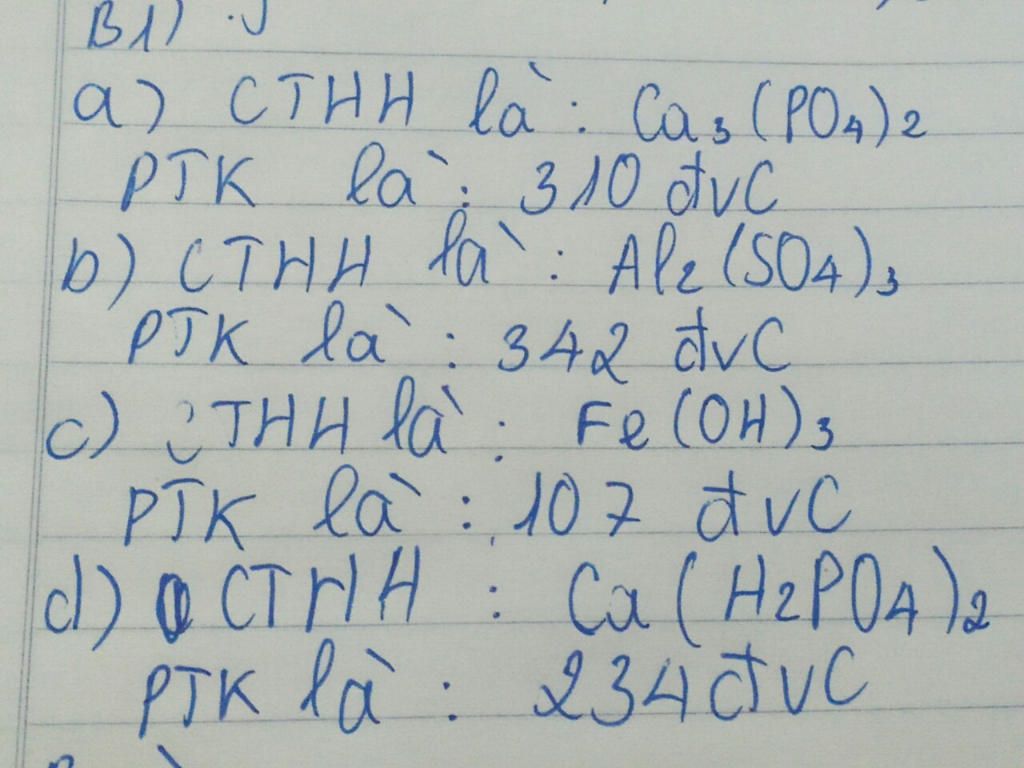 B1)
a) CTHH là: Ca3(PO4)2
PTK là: 310 đvC
b) CTHH là: Al2(SO4)3
PTK là: 342 đvC
c) CTHH là: Fe(OH)3
PTK là: 107 đvC
d) CTHH : Ca(H2PO4)2
PTK là: 234 đvC